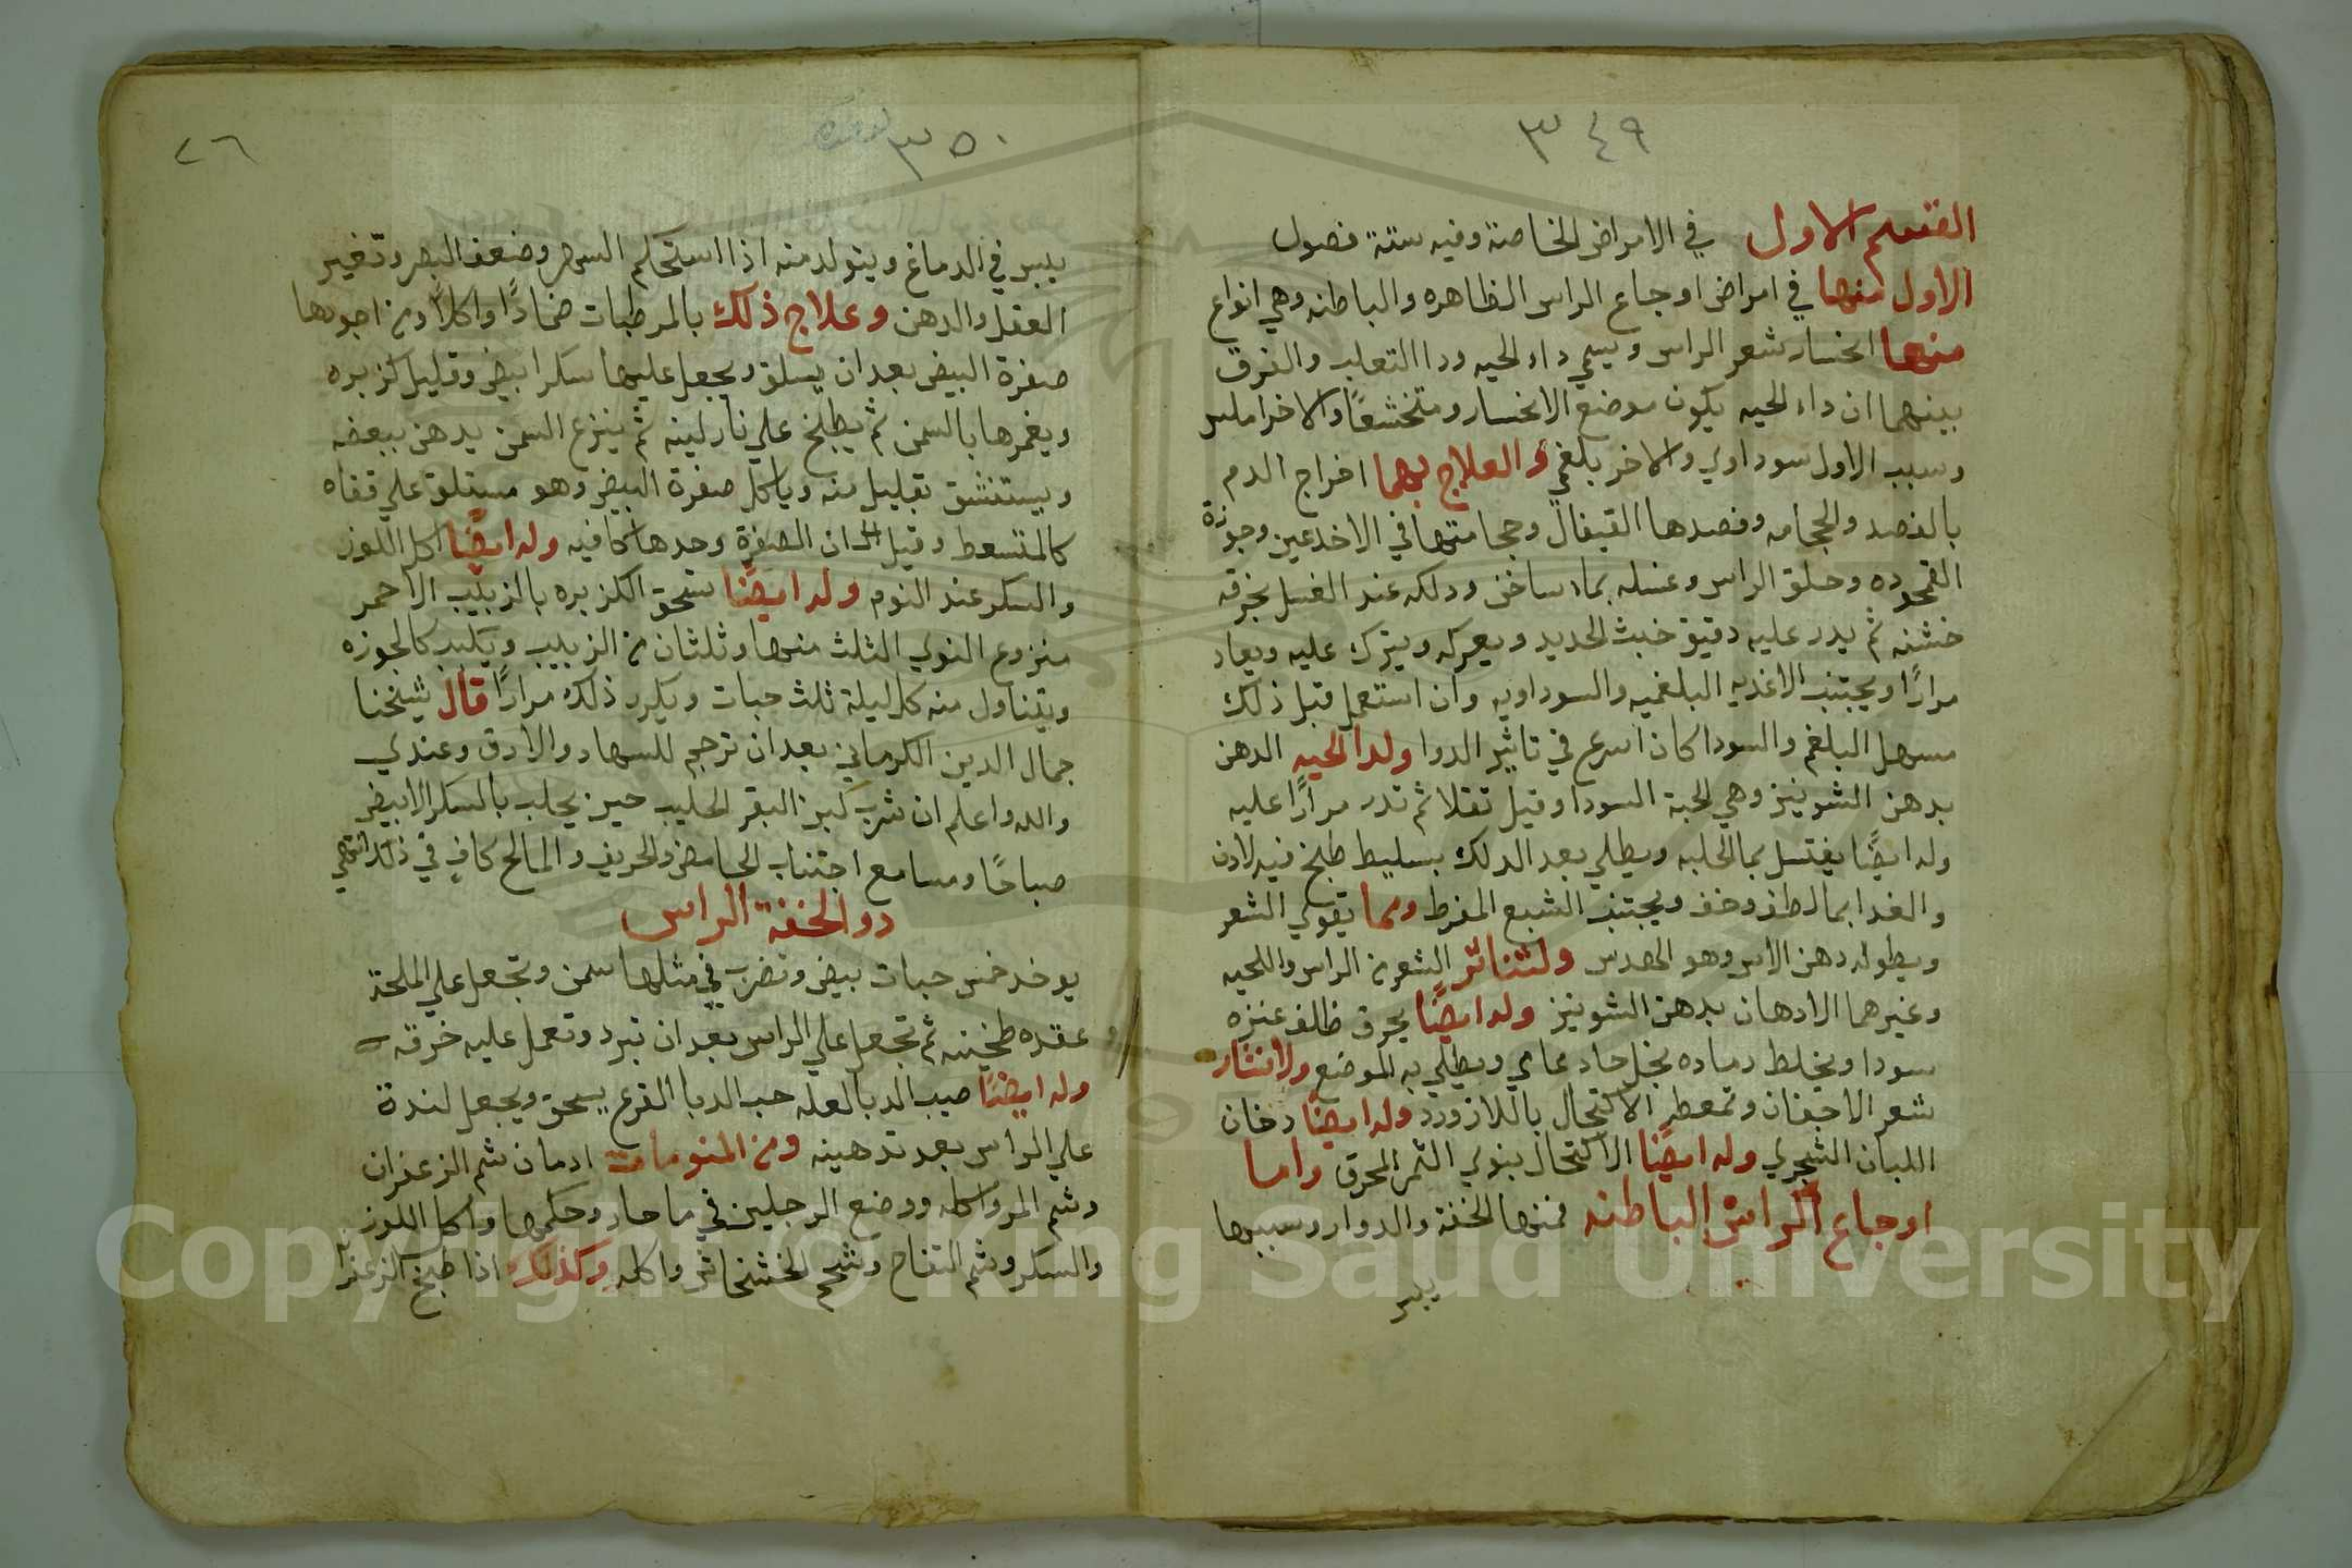 ٣٤٩
القسم الاول في الامراض الخاصة وفيه ستة فصول
الاول منها في امراض اوجاع الراس الظاهره والباطنه وهي انواع
منها انحسار شعر الراس ويسمي داء الحيه ودا الثعلب والفرق
بينهما ان داء الحيه يكون موضع الانحسار ومتخشعًا والاخر املس
وسبب الاول سوداوي والاخر بلغمي والعلاج لهما اخراج الدم
بالفصد والحجامه وفصدها القيفال وحجامتها في الاخدعين وجوزة
القمحوده وحلق الراس وغسله بماء ساخن ودلكه عند الغسل بخرقه
خشنه ثم يدر عليه دقيق خبث الحديد ويعركه ويترك عليه ويعاد
مرارًا ويجتنب الاغذيه البلغميه والسوداويه وان استعمل قبل ذلك
مسهل البلغم والسودا كان اسرع في تاثير الدوا ولدا الحيه الدهن
بدهن الشونيز وهي الحبة السودا وقيل تقلا ثم تدر مرارًا عليه
وله ايضًا يغتسل بما الحلبه ويطلي بعد الدلك بسليط طبخ فيه لادن
والغدا بما لطف وخف ويجتنب الشبع المفرط ومما يقوي الشعر
ويطوله دهن الاس وهو الهدس ولتناثر الشعر من الراس واللحيه
وغيرهما الادهان بدهن الشونيز وله ايضًا يحرق ظلف عنزه
سودا ويخلط رماده بخل حاد عامي ويطلي به الموضع ولانتثار
شعر الاجفان وتمعطه الاكتحال باللازورد وله ايضًا دخان
اللبان الشجري وله ايضًا الاكتحال بنوي الثمر المحرق واما
اوجاع الراس الباطنه فمنها الخفة والدوار وسببها
يبس
٣٥٠
٢٦
يبس في الدماغ ويتولد منه اذا استحكم السهر وضعف البصر وتغيير
العقل والدهن وعلاج ذلك بالمرطبات ضمادًا واكلًا ومن اجودها
صفرة البيض بعد ان يسلق ويجعل عليها سكر ابيض وقليل كزبره
ويغمرها بالسمن ثم يطبخ علي نار لينه ثم ينزع السمن يدهن ببعضه
ويستنشق بقليل منه وياكل صفرة البيض وهو مستلق علي قفاه
كالمتسعط وقيل ان الصفرة وحدها كافيه وله ايضًا اكل اللوز
والسكر عند النوم وله ايضًا سحق الكزبره بالزبيب الاحمر
منزوع النوي الثلث منها وثلثان من الزبيب ويكبب كالجوزه
ويتناول منه كل ليلة ثلث حبات ويكرر ذلك مرارًا قال شيخنا
جمال الدين الكرماني بعد ان ترجم للسهاد والارق وعندي
والله واعلم ان شرب لبن البقر الحليب حين يحلب بالسكر الابيض
صباحًا ومسا مع اجتناب الحامض والحريف والمالح كافٍ في ذلك انتهي
دوا لخفة الراس
يوخد خمس حبات بيض وتضرب في مثلها سمن وتجعل علي الملحة
عقده طحينه ثم تجعل علي الراس بعد ان تبرد وتعمل عليه خرقه
وله ايضًا صب الدبا لعله حب الدبا القرع يسحق ويجعل لندة
علي الراس بعد تدهينه ومن المنومات ادمان شم الزعفران
وشم المر واكله ووضع الرجلين في ما حار وحكمها واكل اللوز
والسكر وشم التفاح وشم الخشخاش واكله وكذلك اذا طبخ الزعفران